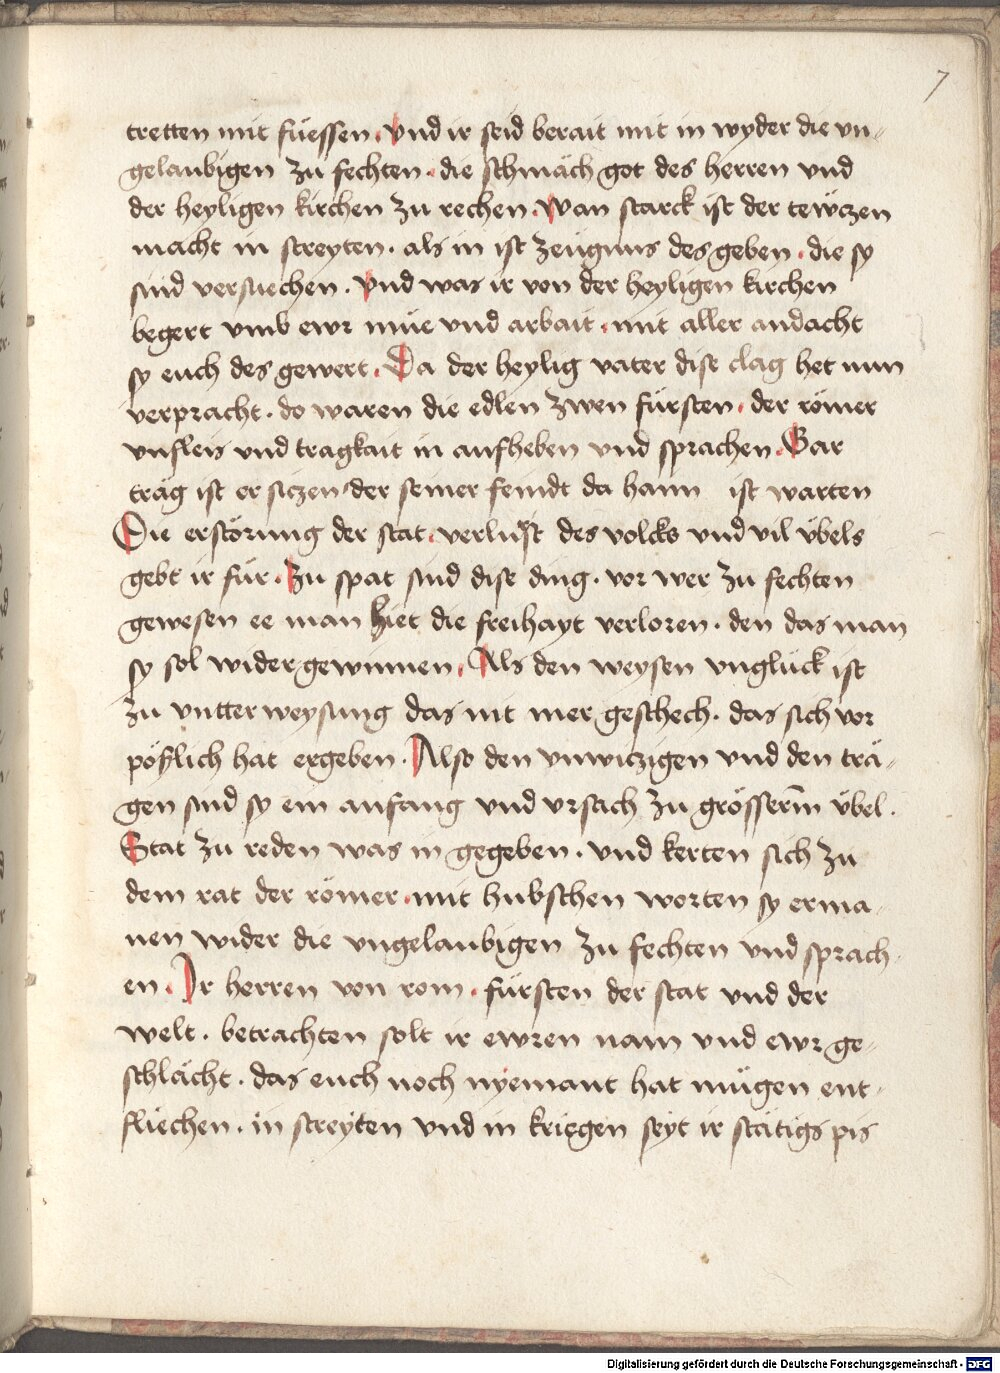 7
tretten mit füessen. Vnd ir seid berait mit in wyder die vn-
gelaubigen zu fechten. die schmäch got des herren vnd
der heyligen kirchen zu rechen. Wan starck ist der tewczen
macht in streyten. als in ist zeügnus des geben. die sy
sind versuechen. Vnd was ir von der heyligen kirchen
begert vmb ewr müe vnd arbait. mit aller andacht
sy euch des gewert. Da der heylig vater dise clag het nun
verpracht. do waren die edlen zwen fürsten. der römer
vnfleis vnd tragkait in aufheben vnd sprachen. Gar
träg ist er siczen der seiner feindt da haim ist warten
Die erstörung der stat. verlust des volcks vnd vil übels
gebt ir für. Zu spat sind dise ding. vor wer zu fechten
gewesen ee man hiet die freihayt verloren. den das man
sy sol wider gewinnen. Als den weysen vnglück ist
zu vntterweysung das nit mer geschech. das sich vor
pößlich hat ergeben. Also den vnwiczigen vnd den trä-
gen sind sy ein anfang vnd vrsach zu grösserm̄ übel.
Stat zu reden was in gegeben. vnd kerten sich zu
dem rat der römer. mit hubschen worten sy erma-
nen wider die vngelaubigen zu fechten vnd sprach-
en. Ir herren von rom. fürsten der stat vnd der
welt. betrachten solt ir ewren nam vnd ewr ge-
schlächt. das euch noch nyemant hat mügen ent-
fliechen. in streyten vnd in kriegen seyt ir stätigs pis
Digitalisierung gefördert durch die Deutsche Forschungsgemeinschaft - DFG